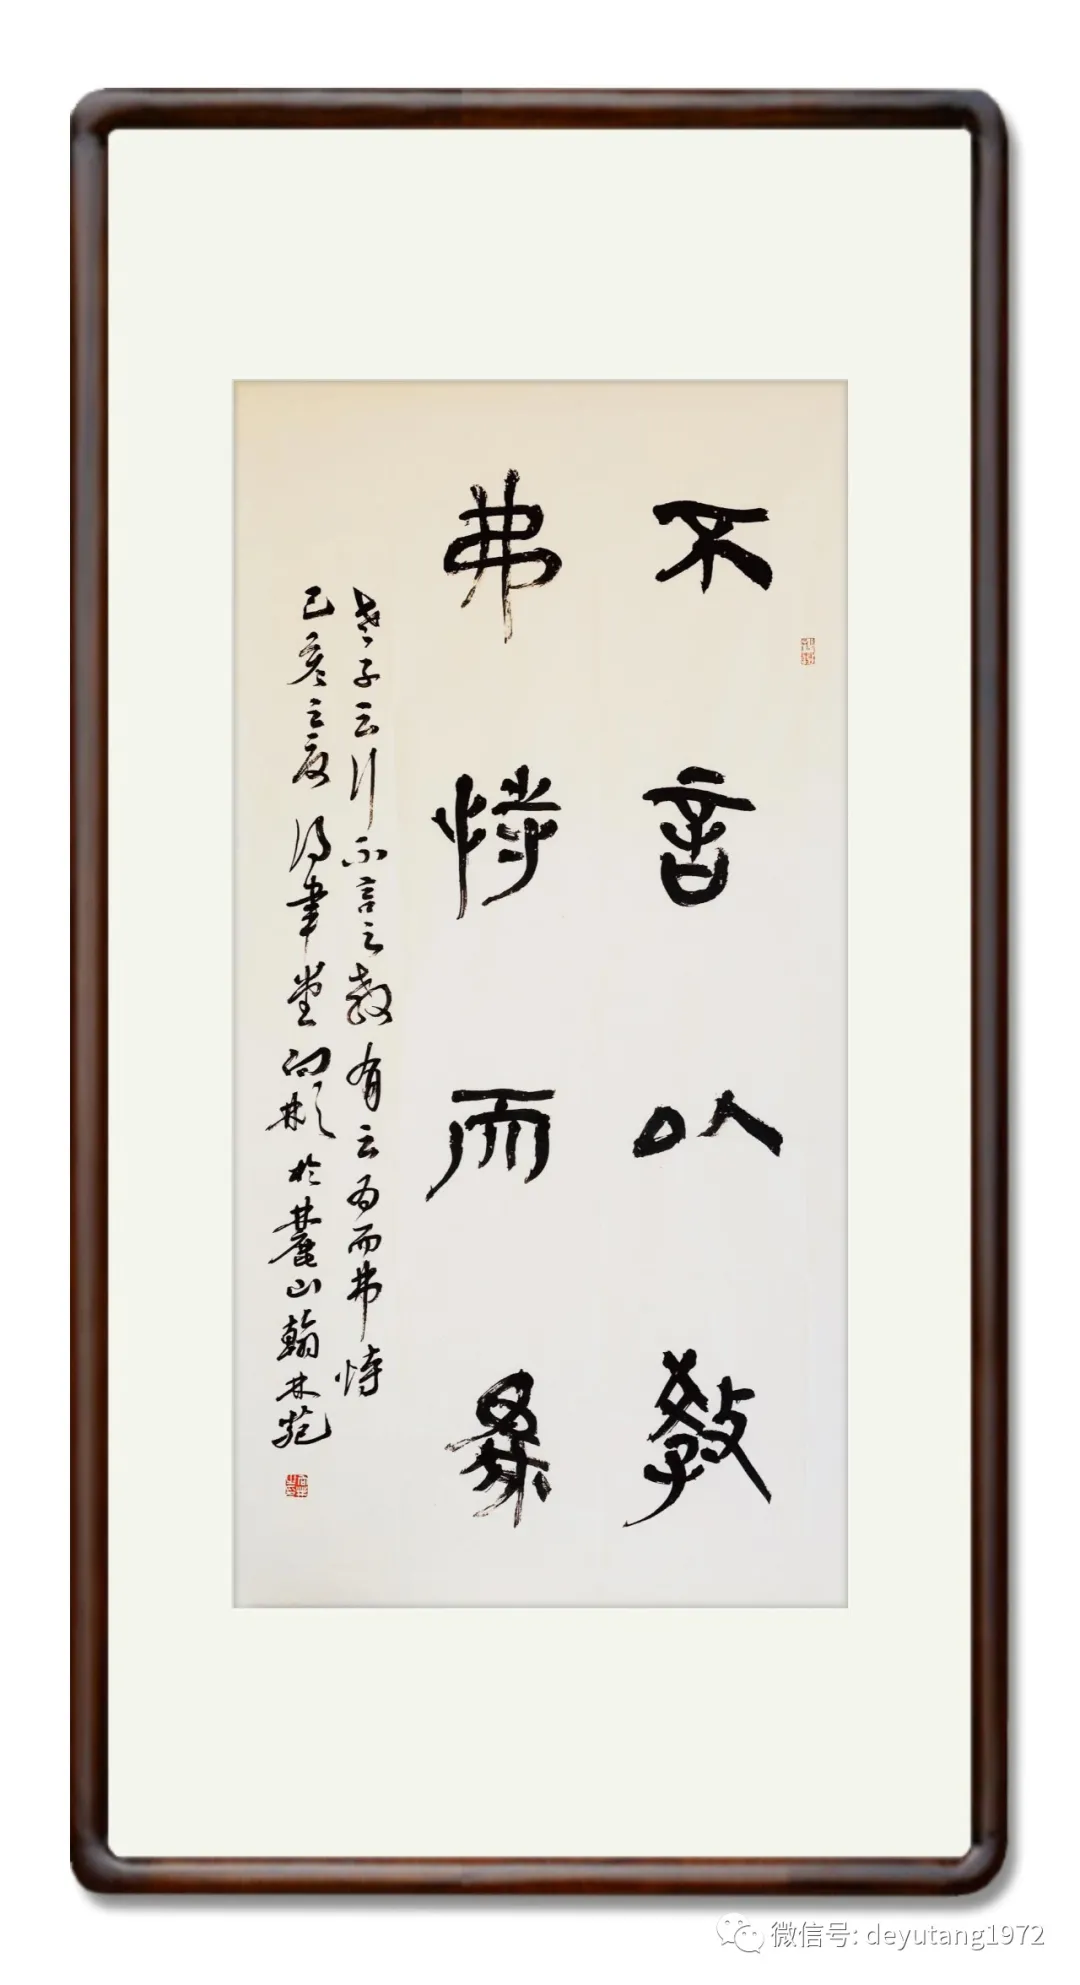 不言以教
弗恃而
老子云行不言之教有云为而弗恃
己亥之夏得聿堂向彬於麓山翰林苑
微信号: deyutang1972